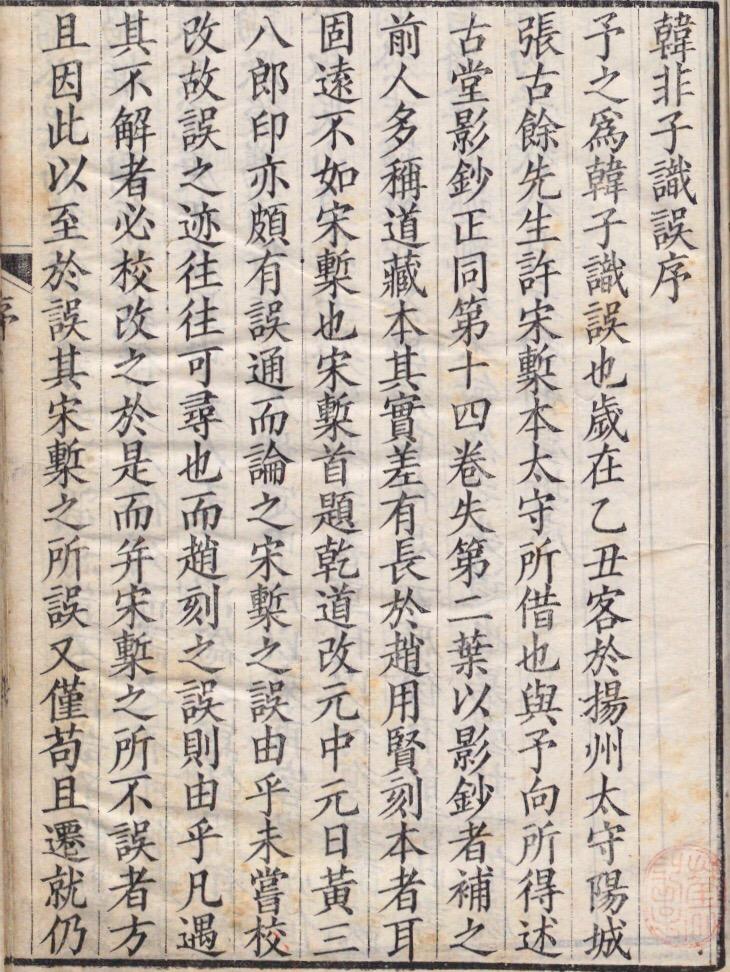 韓非子識誤序
予之爲韓子識誤也歲在乙丑客於揚州太守陽城
張古餘先生許宋槧本太守所借也與予向所得述
古堂影鈔正同第十四卷失第二葉以影鈔者補之
前人多稱道藏本其實差有長於趙用賢刻本者耳
固遠不如宋槧也宋槧首題乾道改元中元日黃三
八郎印亦頗有誤通而論之宋槧之誤由乎未嘗校
改故誤之迹往往可尋也而趙刻之誤則由乎凡遇
其不解者必校改之於是而并宋槧之所不誤者方
且因此以至於誤其宋槧之所誤又僅苟且遷就仍
序